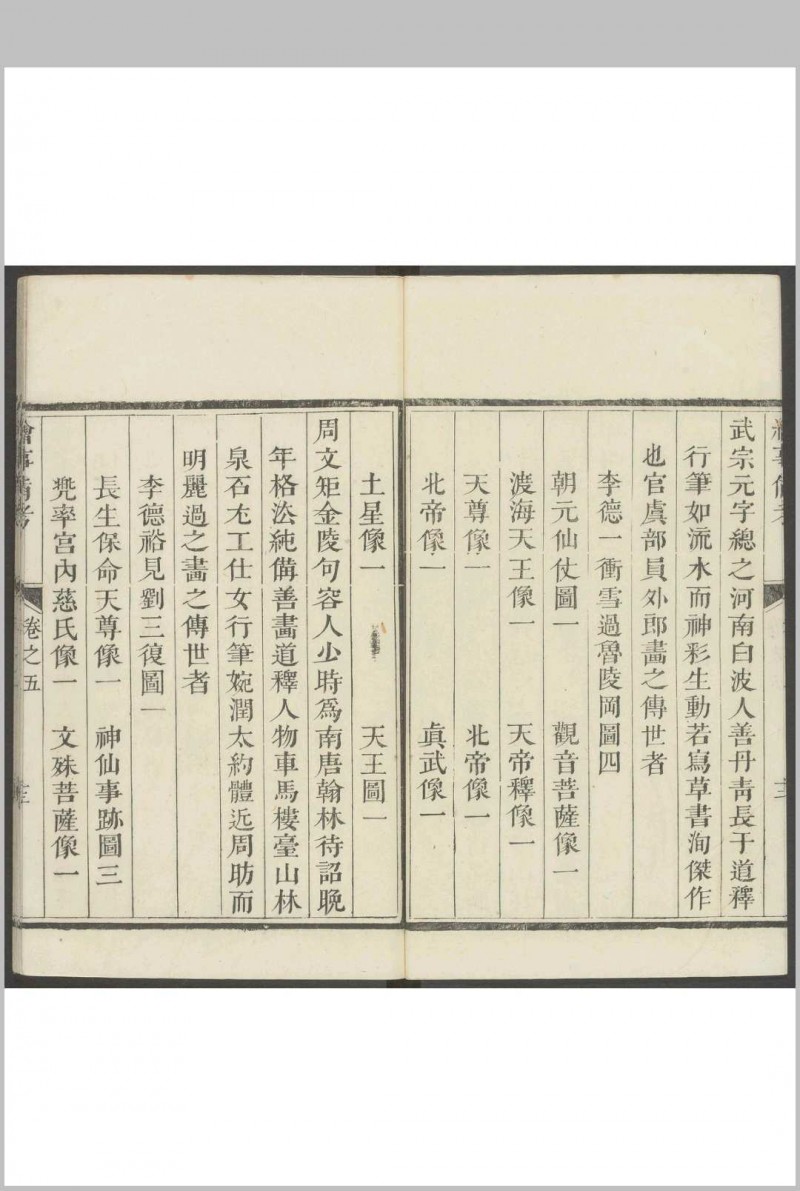 武宗元字總之河南白波人善丹靑長于道釋
行筆如流水而神彩生動若寫草書洵傑作
也官虞部員外郎畫之傳世者
李德一衝雪過魯陵岡圖四
朝元仙仗圖一 觀音菩薩像一
渡海天王像一 天帝釋像一
天尊像一 北帝像一
北帝像一 眞武像一
土星像一 天王圖一
周文矩金陵句容人少時爲南唐翰林待詔晚
年格法純備善畫道釋人物車馬樓臺山林
泉石尤工仕女行筆婉潤太約體近周昉而
明麗過之畫之傳世者
李德裕見劉三復圖一
長生保命天尊像一 神仙事跡圖三
兜率宮內慈氏像一 文殊菩薩像一
繪事備考
卷之五